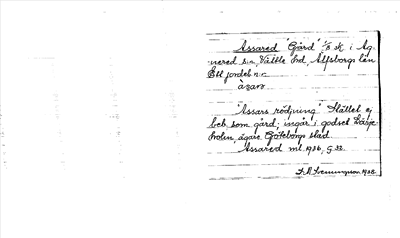 Assared "Gård" 1/8 sk. i Ag-
nered s:n, Vättle hd, Älfsborgs län
Ett jordeb. n:r
àsarə
"Assars rödjning" Stället ej
beb. som gård; ingår i godset Lärje-
holm, ägare Göteborgs stad.
Assared ml. 1936, s. 32.
1938.